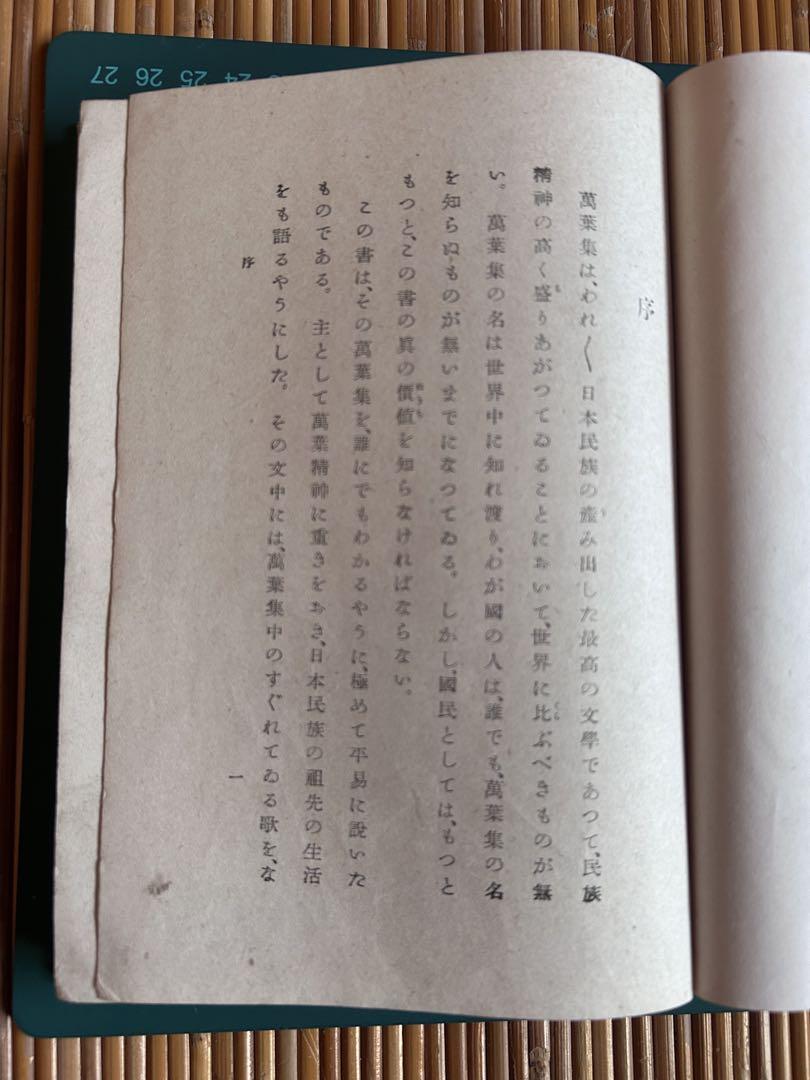 序
萬葉集は、われ〱日本民族の產み出した最高の文學であつて、民族
精神の高く盛りあがつてゐることにおいて、世界に比ぶべきものが無
い。萬葉集の名は世界中に知れ渡り、わが國の人は、誰でも、萬葉集の名
を知らぬものが無いまでになつてゐる。しかし、國民としては、もつと
もつと、この書の眞の價値を知らなければならない。
この書は、その萬葉集を、誰にでもわかるやうに、極めて平易に說いた
ものである。主として萬葉精神に重きをおき、日本民族の祖先の生活
をも語るやうにした。その文中には、萬葉集中のすぐれてゐる歌を、な
序
一
27 26 25 24